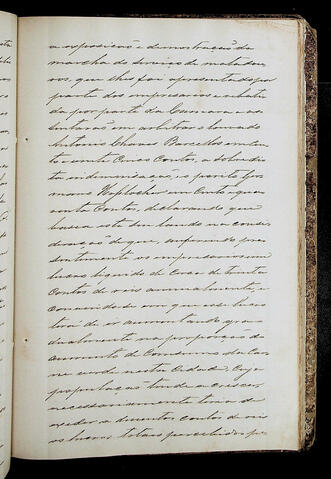 a exposição e demonstração da
marcha do serviço do matadou
ros, que lhes foi apresentada por
parte dos empresarios e rebati
da por parte da Camara e as
sentarão em arbitrar o louvado
Antonio Chaves Barcellos em ten
ta e cinco Contos, a sobredi
ta indemnisação, e o perito Ger
mano em Cento e qua
renta Contos, declarando que
basea este seu laudo na consi
deração de que, auferindo pre
sentemente os empresarios um
lucro liquido de cerca de trinta
Contos de reis annualmente, e
convencido em que esse lucro
terá de ir augmentando gra
dualmente na proporção do
augmento do Consumo da Car
ne verde nesta Cidade, Cuja
população tende a crescer,
necessariamente terá de
exceder a duzentos contos de reis
os lucros totaes percebidos pe